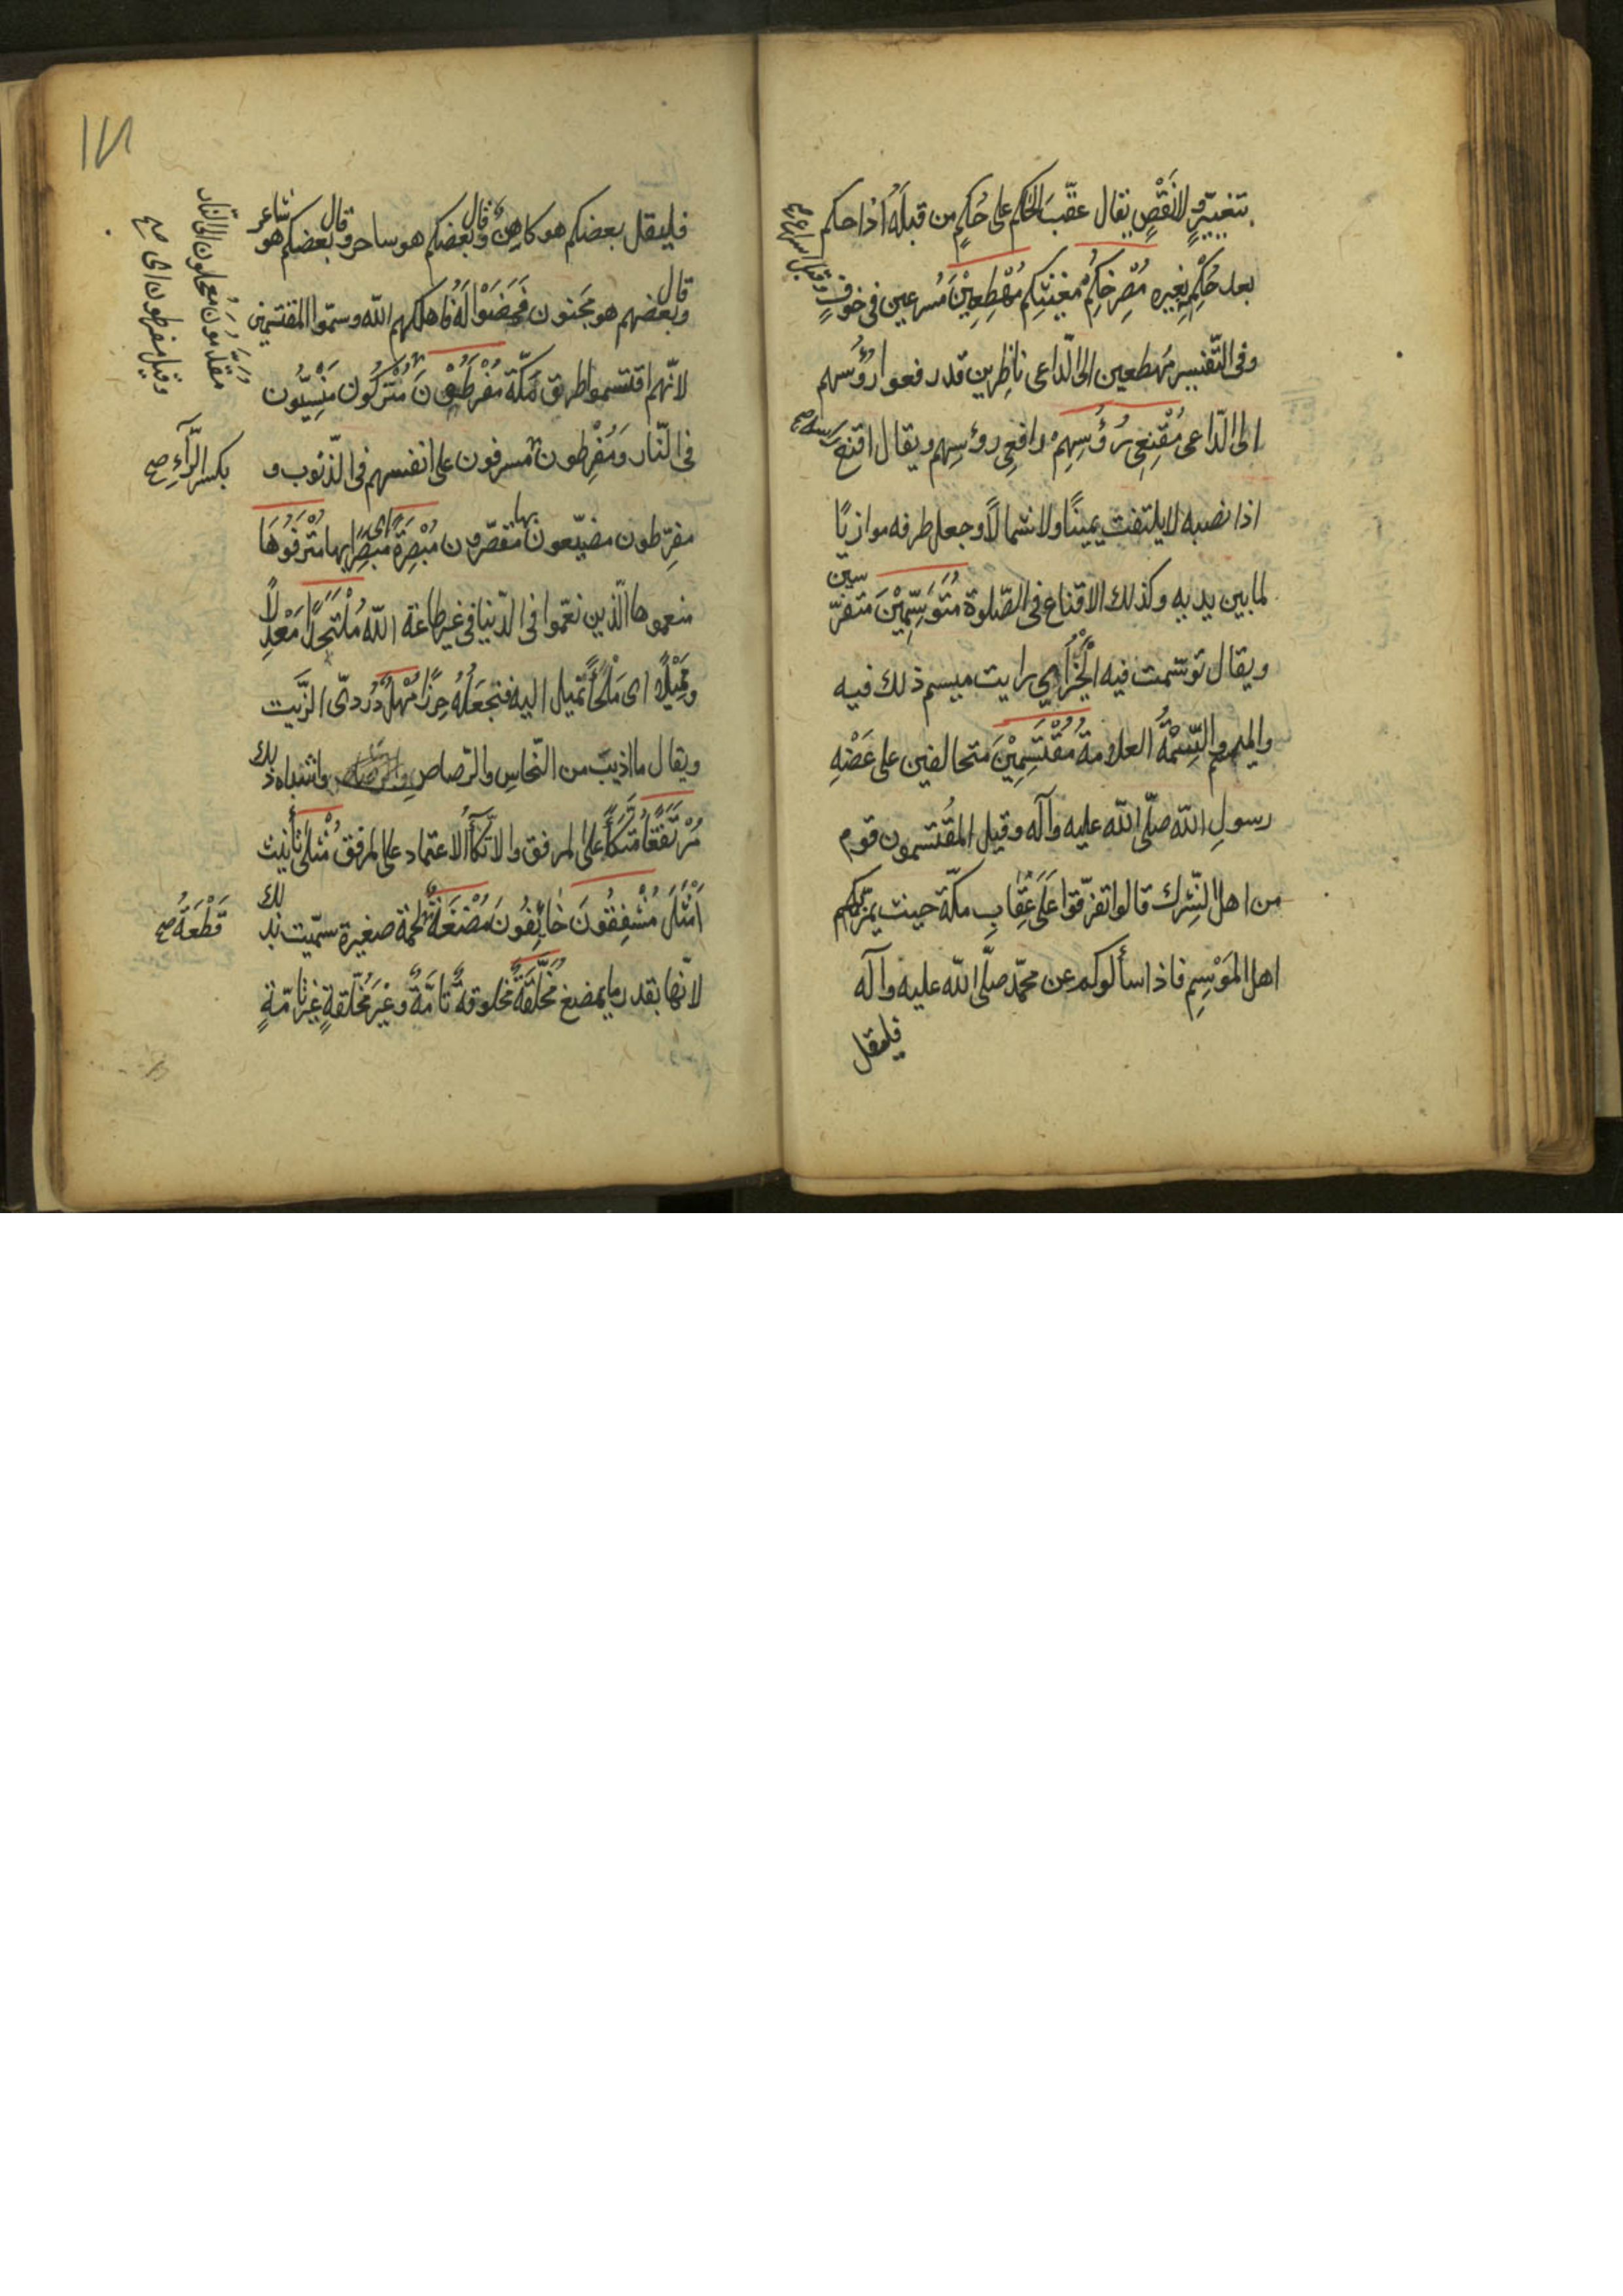 بتغيير ولا نَقْصٍ يقال عقّبَ الحاكم على حُكمٍ من قبلَهُ اذا حكم
بعد حُكْمِهِ بغيره مُصْرِخِكُمْ مغيثِكم مُهْطِعِيْنَ مُسرعين فى خوفٍ
وقيل اسراع صح
وفى التّفسير مُهطعين الى الدّاعى ناظِرين قد رفعوا رؤُسهم
الى الدّاعى مُقْنِعِى رُؤُسِهِمْ رافعِى روُسِهِم ويقال اقنع رأسه صح
اذا نصبه لا يلتفت يمينًا ولا شمالًا وجعل طرفه موازيًا
لما بين يديه وكذلك الاقناع فى الصّلوة مُتَوَسِّمِيْنَ متفرّسين
ويقال توسّمت فيه الْخَيْرَ اى رايت ميسم ذلك فيه
والميسم والسِّمَةُ العلامة مُقْتَسِمِيْنَ متحالفين على عَضْهِ
رسولِ اللّه صلّى اللّه عليه وآله وقيل المقُتسمون قوم
من اهل الشّرك قالوا تفرّقوا عَلَى عِقابِ مكّة حيث يمرّ بكم
اهل المَوْسِمِ فاذا سألوكم عن محمّد صلّى اللّه عليه وآله
فليقل
فليقل بعضكم هو كاهِنٌ وقال بعضكم هو ساحر وقال بعضكم هو شاعر
وقال بعضهم هو مجَنون فمَضَوْا لَهُ فاهلكهم اللّه وسمّوا المقتسمين
لانّهم اقتسموا طريق مَكّة مُفْرَطُوْنَ مُتْرَكُون مَنْسِيُّون
فى النّار وَمُفْرِطون مُسرفون على انفسهم فى الذّنوب و
مفرّطون مضيّعون مقصّرون مُبْصِرَةً اى مُبْصَرًا بها مُتْرَفُوهَا
منعموها الّذين نعّموا فى الدّنيا فى غير طاعة اللّه مُلْتَحَدًا مَعْدِلًا
ومَمِيْلًا اى مَلْجَأً تميل اليه فتجعَلُهُ حِرزًا مُهْلٌ دُرْدىّ الزّيت
ويقال ما اذيبَ من النّحاسِ والرّصاصِ واشباه ذلك
مُرْتَفَقًا مُتّكَأً على المرفق والاتّكاُ الاعتماد على المرفق مُثْلى تأنيث
اَمْثَلَ مُشْفِقُونَ خائِفُونَ مُضْغَةٌ لحْمة صغيرة سمّيت بذلك
لانّها بقدر ما يمضغ مُخَلَّقَةٌ مخلوقةٌ تامَّةٌ وغَيْرِ مُخَلَّقةٍ غير تامّةٍ
مُقَدَّمُونَ مُعجلون الى النّار
وقيل مفرطون اى صح
بكسر الرّآءِ صح
قَطْعَةٌ صح